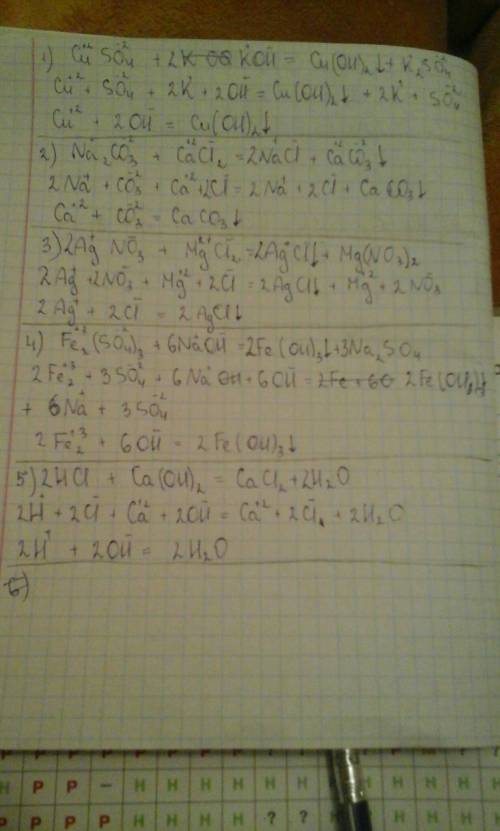 1) Cu⁺²SO₄⁻² + 2K⁺OH⁻ = Cu(OH)₂↓ + K₂SO₄⁻²
Cu⁺² + SO₄⁻² + 2K⁺ + 2OH⁻ = Cu(OH)₂↓ + 2K⁺ + SO₄⁻²
Cu⁺² + 2OH⁻ = Cu(OH)₂↓
2) Na₂⁺CO₃⁻² + Ca⁺²Cl₂⁻ = 2Na⁺Cl⁻ + Ca⁺²CO₃⁻²↓
2Na⁺ + CO₃⁻² + Ca⁺² + 2Cl⁻ = 2Na⁺ + 2Cl⁻ + CaCO₃↓
Ca⁺² + CO₃⁻² = CaCO₃↓
3) 2Ag⁺NO₃⁻ + Mg²⁺Cl₂⁻ = 2Ag⁺Cl⁻↓ + Mg(NO₃)₂
2Ag⁺ + 2NO₃⁻ + Mg⁺² + 2Cl⁻ = 2AgCl↓ + Mg⁺² + 2NO₃⁻
2Ag⁺ + 2Cl⁻ = 2AgCl↓
4) Fe₂⁺³(SO₄⁻²)₃ + 6Na⁺OH⁻ = 2Fe(OH)₃↓ + 3Na₂SO₄
2Fe₂⁺³ + 3SO₄⁻² + 6Na⁺ + 6OH⁻ = 2Fe(OH)₃↓
+ 6Na⁺ + 3SO₄⁻²
2Fe₂⁺³ + 6OH⁻ = 2Fe(OH)₃↓
5) 2HCl + Ca(OH)₂ = CaCl₂ + 2H₂O
2H⁺ + 2Cl⁻ + Ca⁺² + 2OH⁻ = Ca⁺² + 2Cl⁻ + 2H₂O
2H⁺ + 2OH⁻ = 2H₂O
6)
Н Р Р – Н Н Н Н Н Н Н Н
Р Р Р Р Н Н Н ? ? Н Н Н